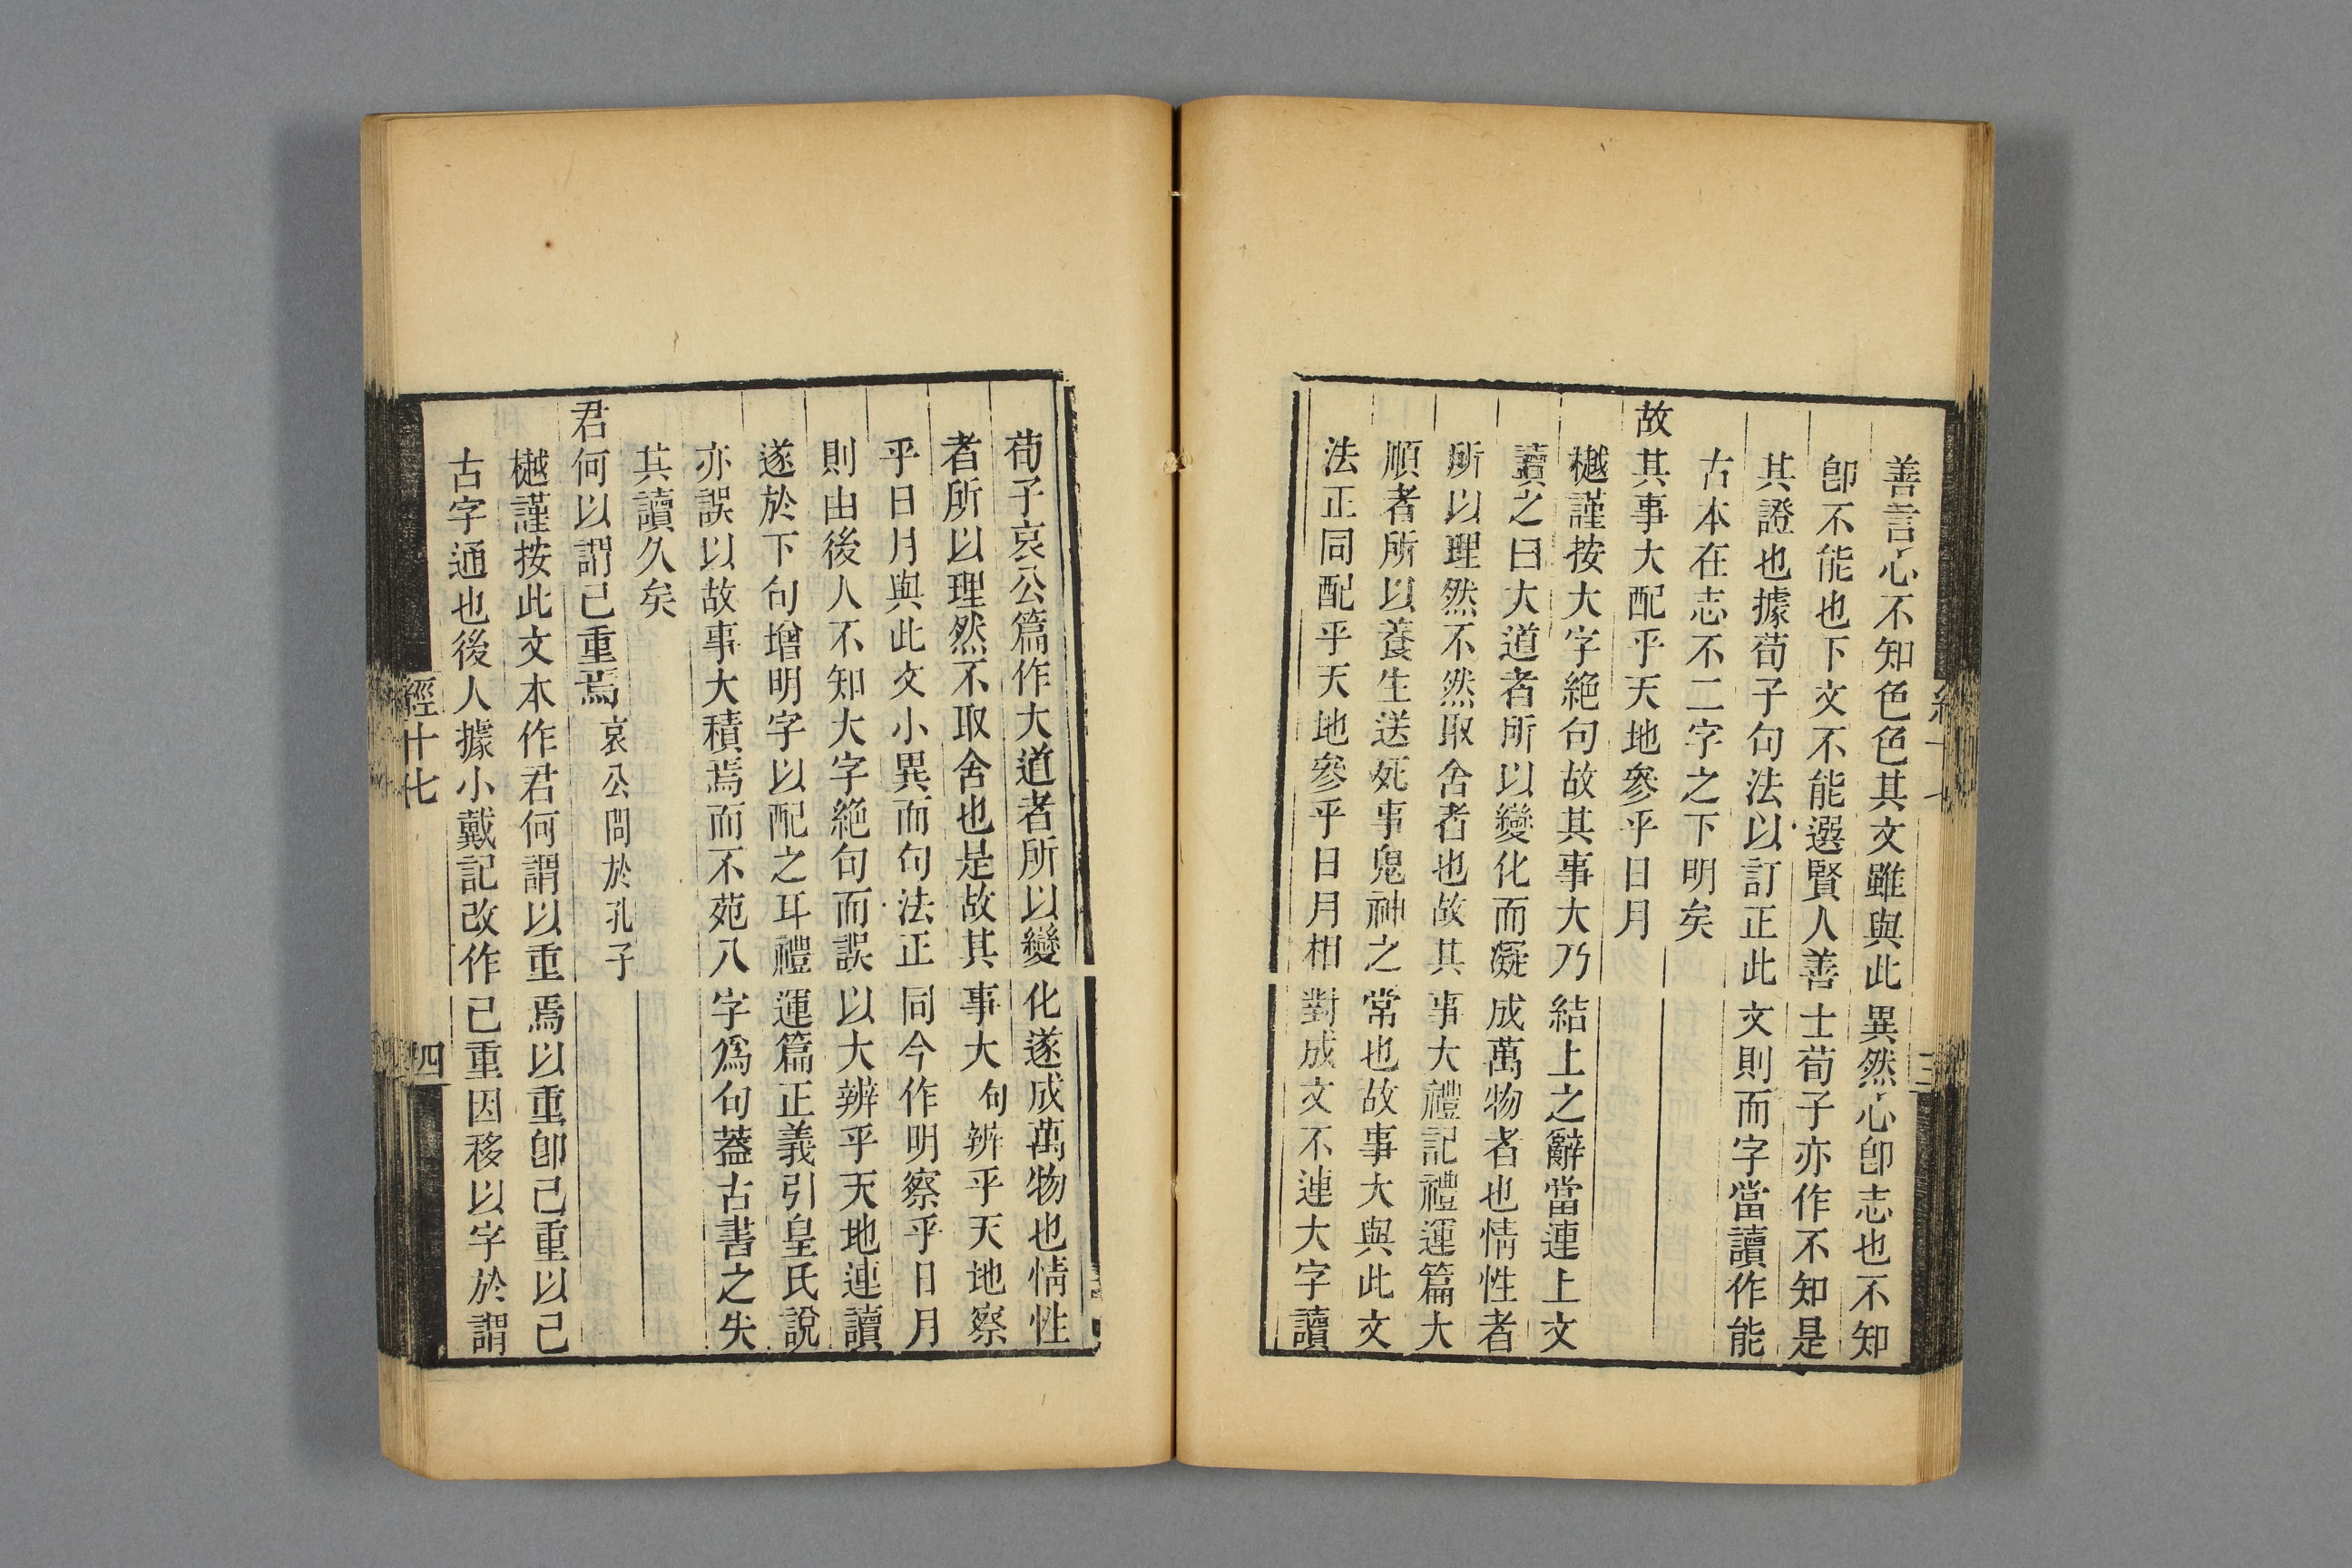 善言心不知色色其文雖與此異然心卽志也不知
卽不能也下文不能選賢人善士荀子亦作不知是
其證也據荀子句法以訂正此文則而字當讀作能
古本在志不二字之下明矣
故其事大配乎天地參乎日月
樾謹按大字絶句故其事大乃結上之辭當連上文
讀之曰大道者所以變化而凝成萬物者也情性者
所以理然不然取舍者也故其事大禮記禮運篇大
順者所以養生送死事鬼神之常也故事大與此文
法正同配乎天地參乎日月相對成文不連大字讀
荀子哀公篇作大道者所以變化遂成萬物也情性
者所以理然不取舍也是故其事大句辨乎天地察
乎日月與此文小異而句法正同今作明察乎日月
則由後人不知大字絶句而誤以大辨乎天地連讀
遂於下句增明字以配之耳禮運篇正義引皇氏說
亦誤以故事大積焉而不苑八字爲句葢古書之失
其讀久矣
君何以謂已重焉 哀公問於孔子
樾謹按此文本作君何謂以重焉以重卽已重以已
古字通也後人據小戴記改作已重因移以字於謂
經十七
四